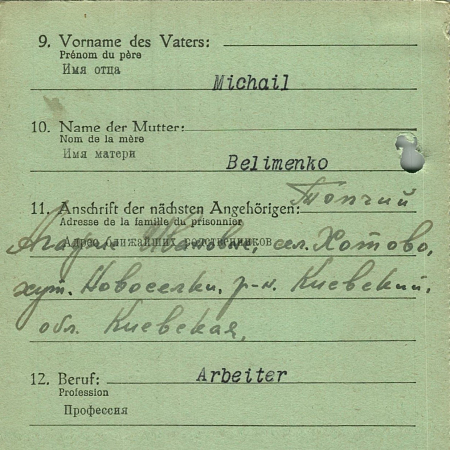 9. Vorname des Vaters:
Prénom du père
Имя отца
Michail
10. Name der Mutter:
Nom de la mère
Имя матери
Belimenko
11. Anschrift der nächsten Angehörigen: Топчий
Adresse de la famille du prisonnier
Адрес ближайших родственников
Ивановне, сел. Хотово,
хут. Новоселки, р-н. Киевский,
обл. Киевская,
12. Beruf: Arbeiter
Profession
Профессия